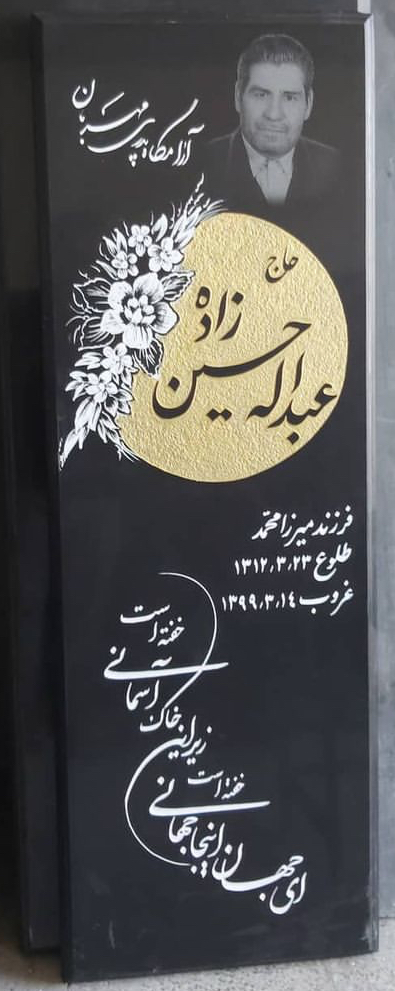 آرامگاه پدری مهربان
حاج
عبداله حسین زاده
فرزند میرزا محمد
طلوع ۱۳۱۲٫۳٫۲۳
غروب ۱۳۹۹٫۳٫۱۴
ای جهان اینجا جهانی
خفته است
زیر این خاک
آسمانی
خفته است